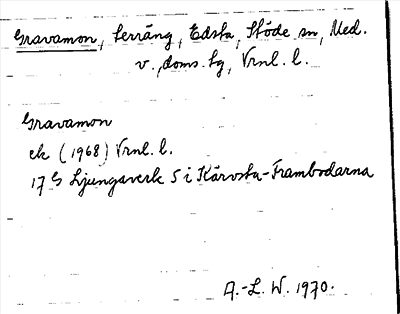 Gravamon, terräng, Edsta, Stöde sn, Med.
v., doms. tg, Vrnl. l.
Gravamon
ek (1968) Vrnl. l.
17 G Ljungaverk 5 i Kärvsta-Frambodarna
A.-L. W. 1970.